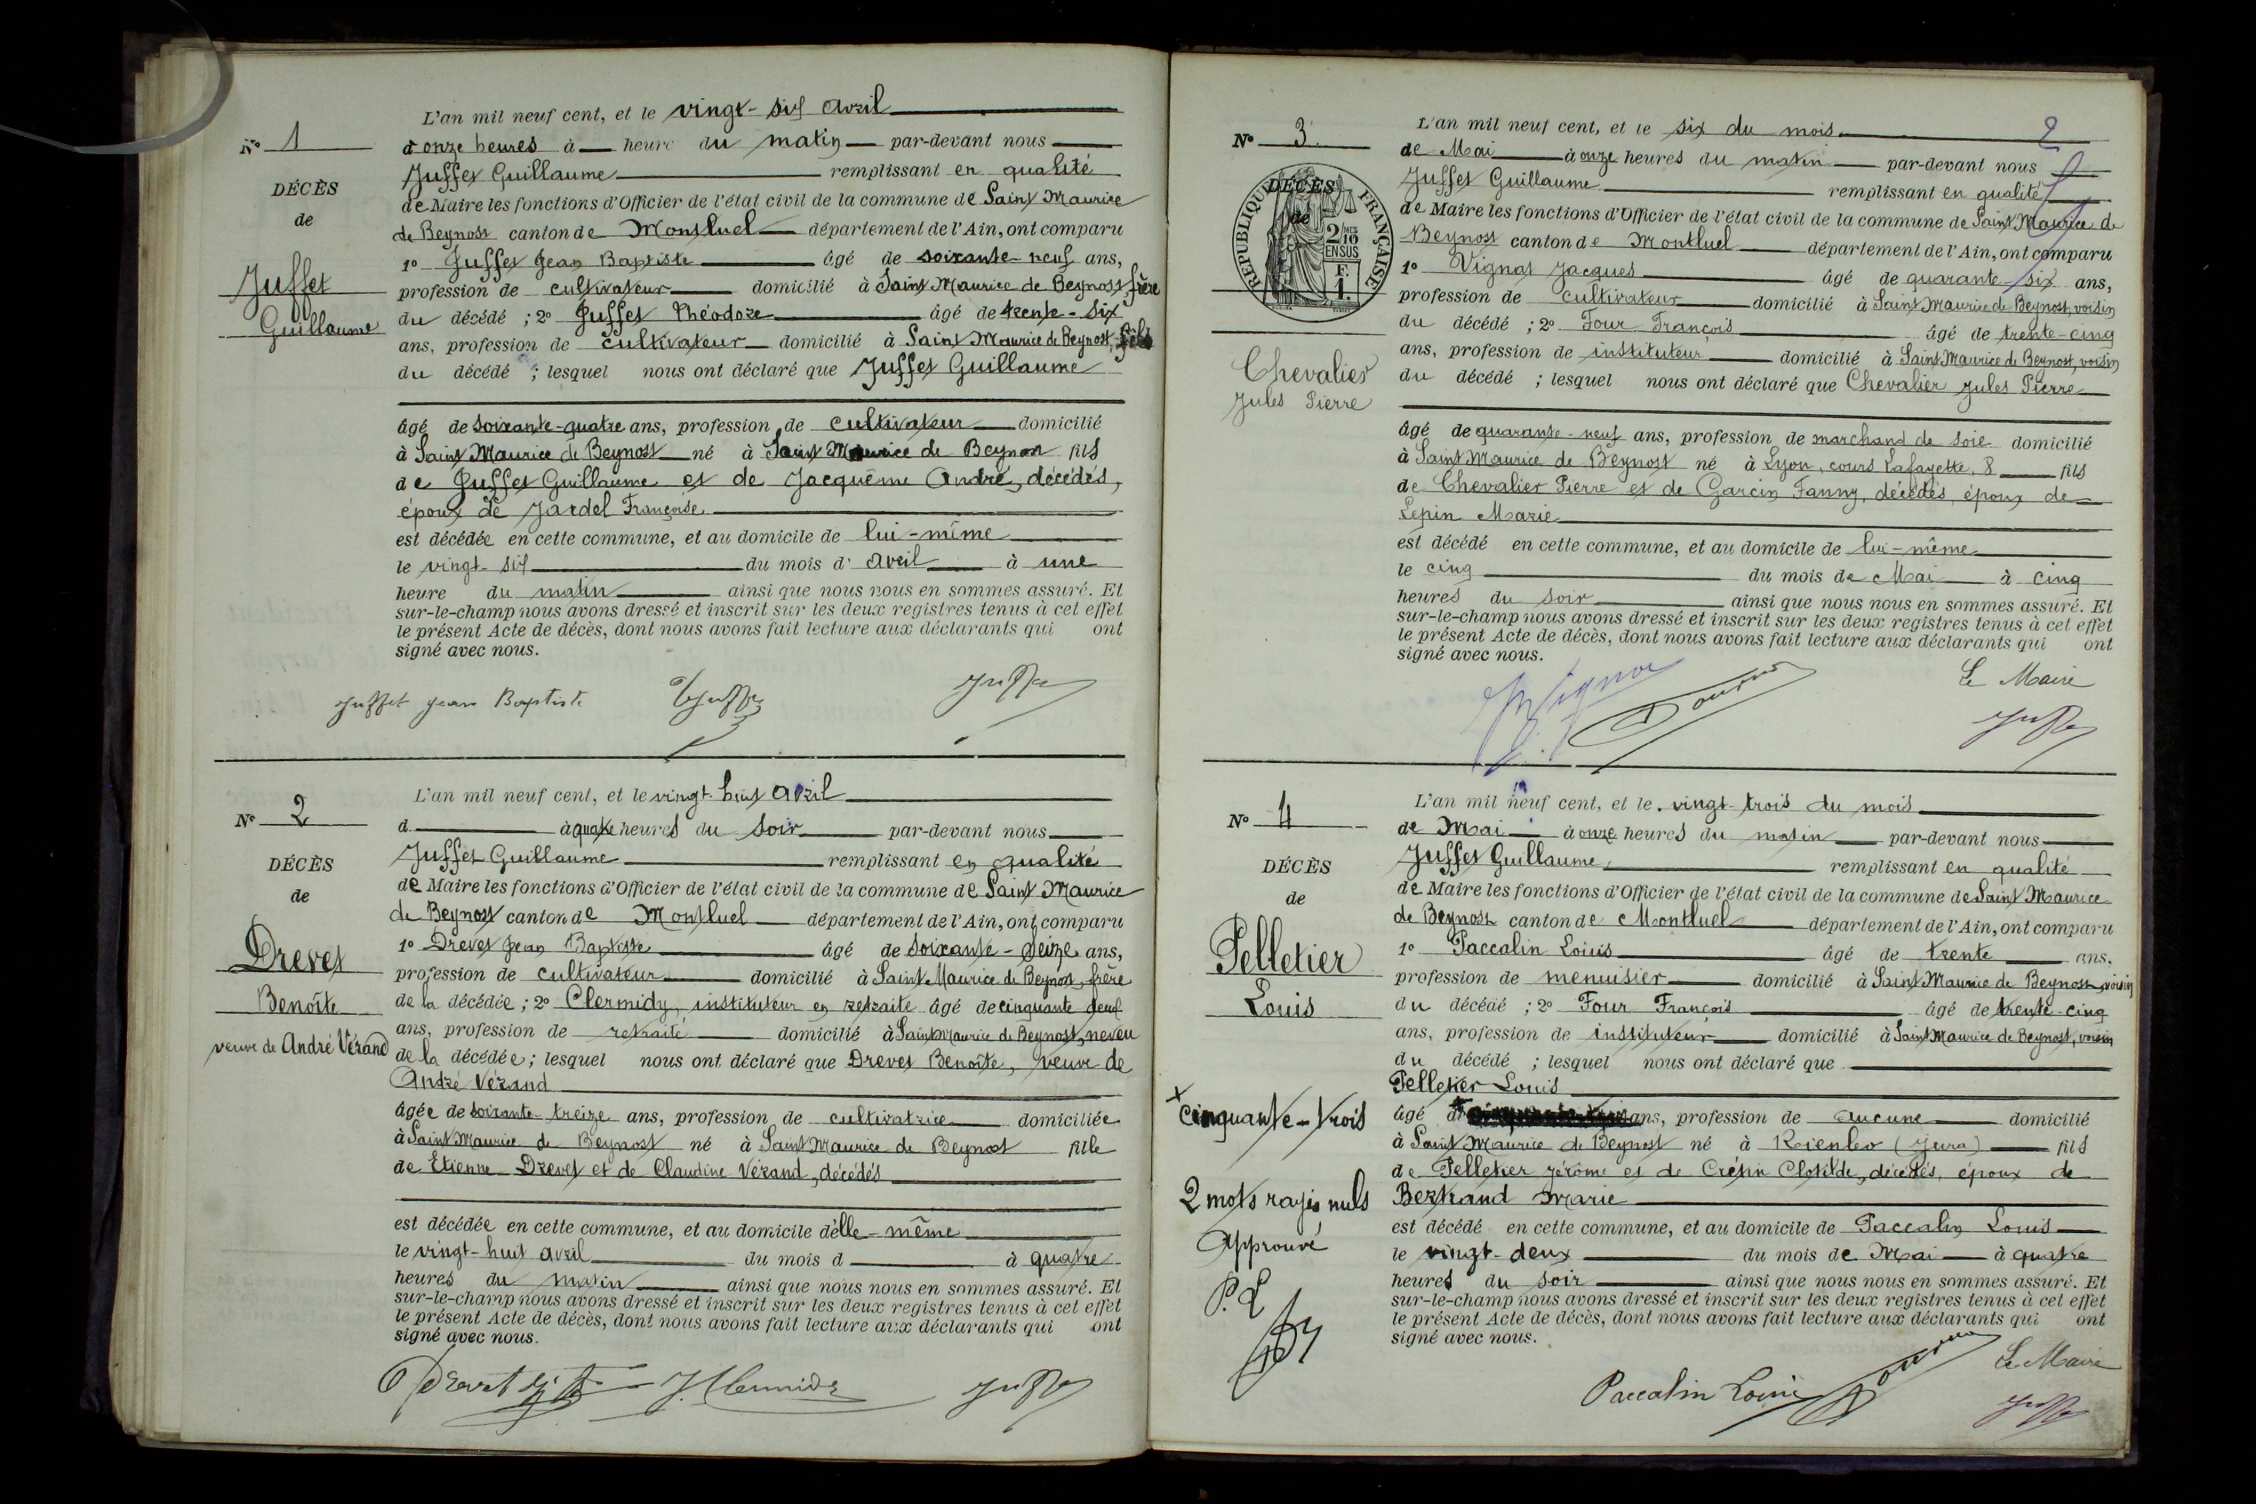 L'an mil neuf cent, et le vingt-six avril
N° 1
à onze heures à heure du matin par-devant nous
Juffet Guillaume remplissant en qualité
DÉCÈS
de Maire les fonctions d'Officier de l'état civil de la commune de Saint Maurice
de
de Beynost canton de Montluel département de l'Ain, ont comparu
1° Juffet Jean Baptiste âgé de soixante-neuf ans,
Juffet
profession de cultivateur domicilié à Saint Maurice de Beynost frère
Guillaume
du décédé ; 2° Juffet Théodore âgé de trente-six
ans, profession de cultivateur domicilié à Saint Maurice de Beynost, fils
du décédé ; lesquel nous ont déclaré que Juffet Guillaume
âgé de soixante-quatre ans, profession de cultivateur domicilié
à Saint Maurice de Beynost né à Saint Maurice de Beynost fils
de Juffet Guillaume et de Jacquême André, décédés,
époux de Jardel Françoise
est décédée en cette commune, et au domicile de lui-même
le vingt-six du mois d'avril à une
heure du matin ainsi que nous nous en sommes assuré. Et
sur-le-champ nous avons dressé et inscrit sur les deux registres tenus à cet effet
le présent Acte de décès, dont nous avons fait lecture aux déclarants qui ont
signé avec nous.
Juffet Jean Baptiste Juffet
L'an mil neuf cent, et le vingt-huit avril
N° 2
d à quatre heures du soir par-devant nous
Juffet Guillaume remplissant en qualité
DÉCÈS
de Maire les fonctions d'Officier de l'état civil de la commune de Saint Maurice
de
de Beynost canton de Montluel département de l'Ain, ont comparu
1° Drevet Jean Baptiste âgé de soixante-seize ans,
Drevet
profession de cultivateur domicilié à Saint Maurice de Beynost, frère
Benoîte
de la décédée ; 2° Clermidy, instituteur en retraite âgé de cinquante neuf
ans, profession de retraité domicilié à Saint Maurice de Beynost, neveu
veuve de André Vérand
de la décédée ; lesquel nous ont déclaré que Drevet Benoîte, veuve de
André Vérand
âgée de soixante-treize ans, profession de cultivatrice domiciliée
à Saint Maurice de Beynost né à Saint Maurice de Beynost fille
de Etienne Drevet et de Claudine Vérand, décédés
est décédée en cette commune, et au domicile d'elle-même
le vingt-huit avril du mois d à quatre
heures du matin ainsi que nous nous en sommes assuré. Et
sur-le-champ nous avons dressé et inscrit sur les deux registres tenus à cet effet
le présent Acte de décès, dont nous avons fait lecture aux déclarants qui ont
signé avec nous.
J. Clermidy Juffet
2
L'an mil neuf cent, et le six du mois
N° 3
de Mai à onze heures du matin par-devant nous
Juffet Guillaume remplissant en qualité
DÉCÈS
de
RÉPUBLIQUE FRANÇAISE
2/10 EN SUS
F.
1.
de Maire les fonctions d'Officier de l'état civil de la commune de Saint Maurice de
Beynost canton de Montluel département de l'Ain, ont comparu
1° Vignat Jacques âgé de quarante-six ans,
profession de cultivateur domicilié à Saint Maurice de Beynost, voisin
du décédé ; 2° Four François âgé de trente-cinq
ans, profession de instituteur domicilié à Saint Maurice de Beynost, voisin
Chevalier
Jules Pierre
du décédé ; lesquel nous ont déclaré que Chevalier Jules Pierre
âgé de quarante-neuf ans, profession de marchand de soie domicilié
à Saint Maurice de Beynost né à Lyon, cours Lafayette, 8 fils
de Chevalier Pierre et de Garcin Fanny, décédés, époux de
Lepin Marie
est décédé en cette commune, et au domicile de lui-même
le cinq du mois de Mai à cinq
heures du soir ainsi que nous nous en sommes assuré. Et
sur-le-champ nous avons dressé et inscrit sur les deux registres tenus à cet effet
le présent Acte de décès, dont nous avons fait lecture aux déclarants qui ont
signé avec nous.
Le Maire
Vignat Juffet
L'an mil neuf cent, et le vingt-trois du mois
N° 4
de Mai à onze heures du matin par-devant nous
Juffet Guillaume, remplissant en qualité
DÉCÈS
de Maire les fonctions d'Officier de l'état civil de la commune de Saint Maurice
de
de Beynost canton de Montluel département de l'Ain, ont comparu
1° Paccalin Louis âgé de trente ans,
Pelletier
profession de menuisier domicilié à Saint Maurice de Beynost, voisin
Louis
du décédé ; 2° Four François âgé de trente-cinq
ans, profession de instituteur domicilié à Saint Maurice de Beynost, voisin
du décédé ; lesquel nous ont déclaré que
Pelletier Louis
+ cinquante-trois
âgé d ans, profession de aucune domicilié
à Saint Maurice de Beynost né à (Jura) fils
de Pelletier Jérôme et de Crépin Clotilde, décédés, époux de
2 mots rayés nuls
Bertrand Marie
Approuvé
est décédé en cette commune, et au domicile de Paccalin Louis
le vingt-deux du mois de Mai à quatre
P. L
heures du soir ainsi que nous nous en sommes assuré. Et
sur-le-champ nous avons dressé et inscrit sur les deux registres tenus à cet effet
le présent Acte de décès, dont nous avons fait lecture aux déclarants qui ont
signé avec nous.
Le Maire
Paccalin Louis Juffet